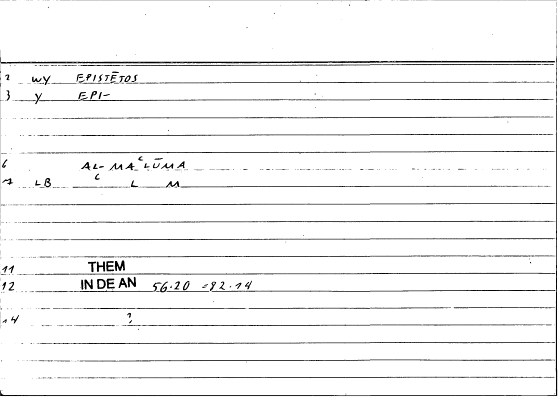 2 WY EPISTĒTOS
3 Y EPI-
6 AL-MAʿLŪMA
7 LB ʿ L M
11 THEM
12 IN DE AN 56.20 =82.14
14 ?